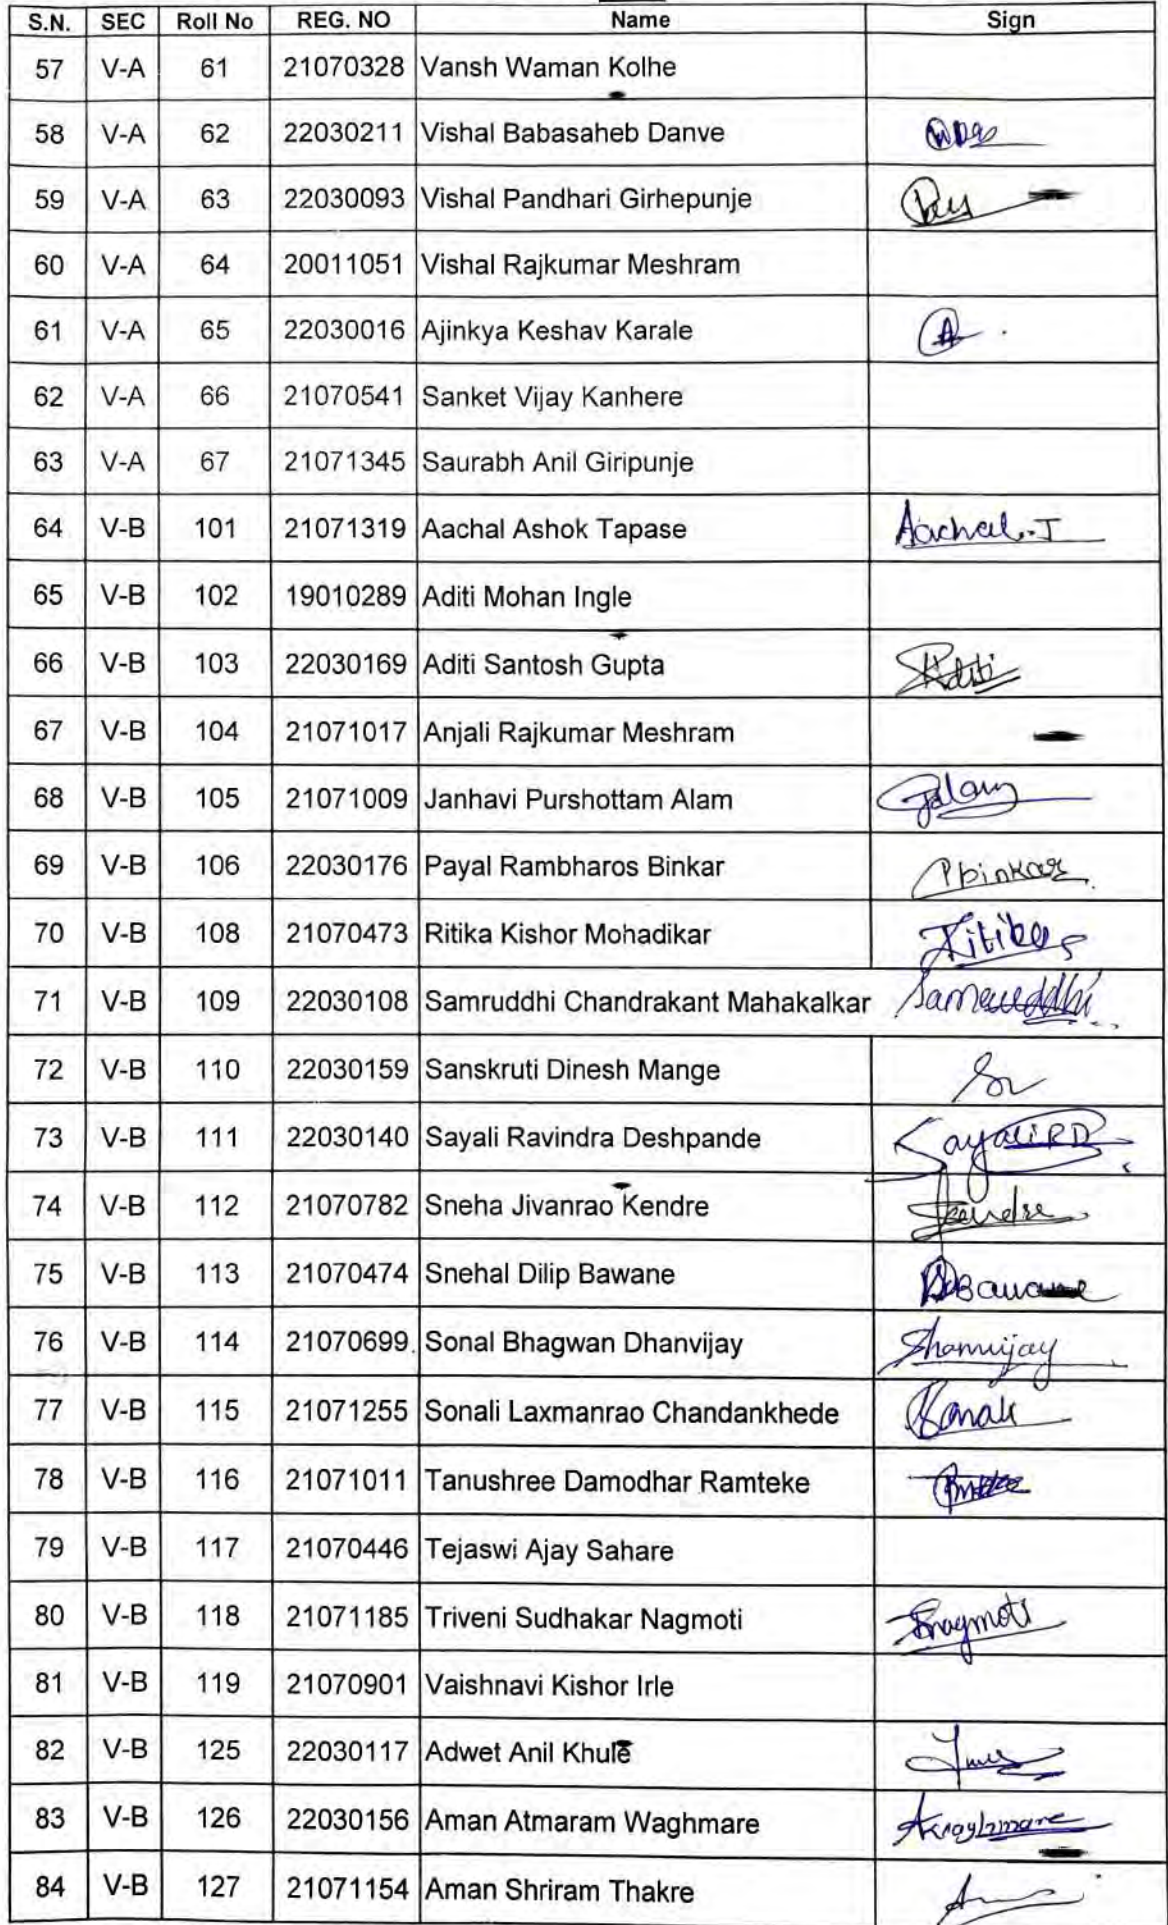 S.N. SEC Roll No REG. NO Name Sign
57 V-A 61 21070328 Vansh Waman Kolhe
58 V-A 62 22030211 Vishal Babasaheb Danve
59 V-A 63 22030093 Vishal Pandhari Girhepunje
60 V-A 64 20011051 Vishal Rajkumar Meshram
61 V-A 65 22030016 Ajinkya Keshav Karale A
62 V-A 66 21070541 Sanket Vijay Kanhere
63 V-A 67 21071345 Saurabh Anil Giripunje
64 V-B 101 21071319 Aachal Ashok Tapase Aachal.T
65 V-B 102 19010289 Aditi Mohan Ingle
66 V-B 103 22030169 Aditi Santosh Gupta Aditi
67 V-B 104 21071017 Anjali Rajkumar Meshram
68 V-B 105 21071009 Janhavi Purshottam Alam
69 V-B 106 22030176 Payal Rambharos Binkar Pbinkar
70 V-B 108 21070473 Ritika Kishor Mohadikar Ritika
71 V-B 109 22030108 Samruddhi Chandrakant Mahakalkar Samruddhi
72 V-B 110 22030159 Sanskruti Dinesh Mange
73 V-B 111 22030140 Sayali Ravindra Deshpande Sayali RD
74 V-B 112 21070782 Sneha Jivanrao Kendre
75 V-B 113 21070474 Snehal Dilip Bawane
76 V-B 114 21070699 Sonal Bhagwan Dhanvijay
77 V-B 115 21071255 Sonali Laxmanrao Chandankhede
78 V-B 116 21071011 Tanushree Damodhar Ramteke
79 V-B 117 21070446 Tejaswi Ajay Sahare
80 V-B 118 21071185 Triveni Sudhakar Nagmoti
81 V-B 119 21070901 Vaishnavi Kishor Irle
82 V-B 125 22030117 Adwet Anil Khule
83 V-B 126 22030156 Aman Atmaram Waghmare
84 V-B 127 21071154 Aman Shriram Thakre